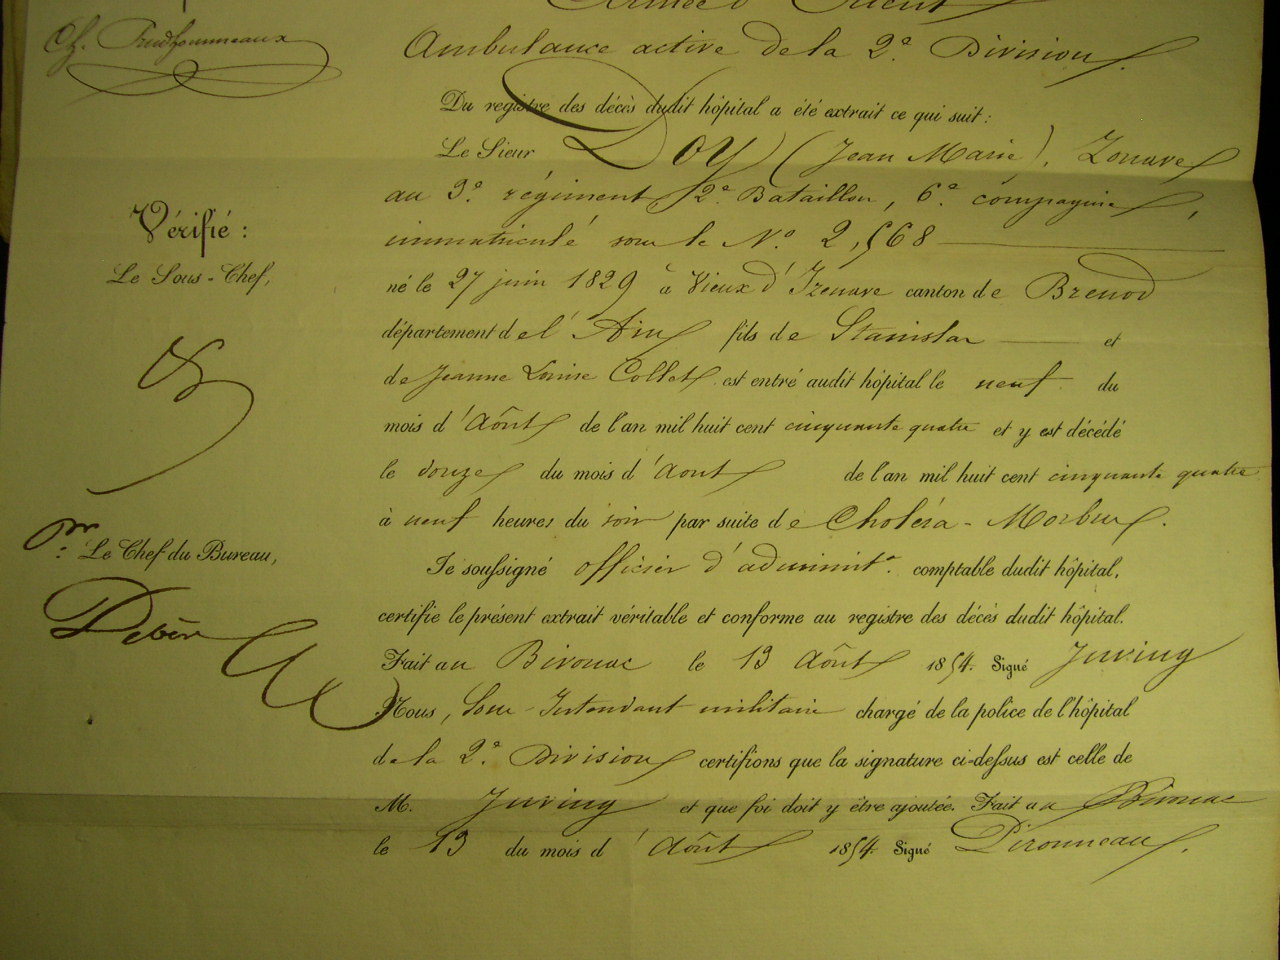 Armée d'Orient
Ch. Prudhommeaux
Ambulance active de la 2e. Division.
Du registre des décès dudit hôpital a été extrait ce qui suit :
Le Sieur Doy (Jean Marie), Zouave
au 3e. régiment 2e. Bataillon, 6e. compagnie,
immatriculé sous le No. 2,568
né le 27 juin 1829 à Vieux d'Izenave canton de Brenod
département de l'Ain fils de Stanislas et
de Jeanne Louise Collet est entré audit hôpital le neuf du
mois d'Août de l'an mil huit cent cinquante quatre et y est décédé
le douze du mois d'Aout de l'an mil huit cent cinquante quatre
à neuf heures du soir par suite de Choléra-Morbus.
Je soussigné officier d'administ.n comptable dudit hôpital,
certifie le présent extrait véritable et conforme au registre des décès dudit hôpital.
Fait au Bivouac le 13 Août 1854. Signé Juving
Nous, Sous-Intendant militaire chargé de la police de l'hôpital
de la 2e. Division certifions que la signature ci-dessus est celle de
M. Juving et que foi doit y être ajoutée. Fait au Bivouac
le 13 du mois d'Août 1854. Signé Pironneau.
Vérifié :
Le Sous-Chef,
Pr. Le Chef du Bureau,